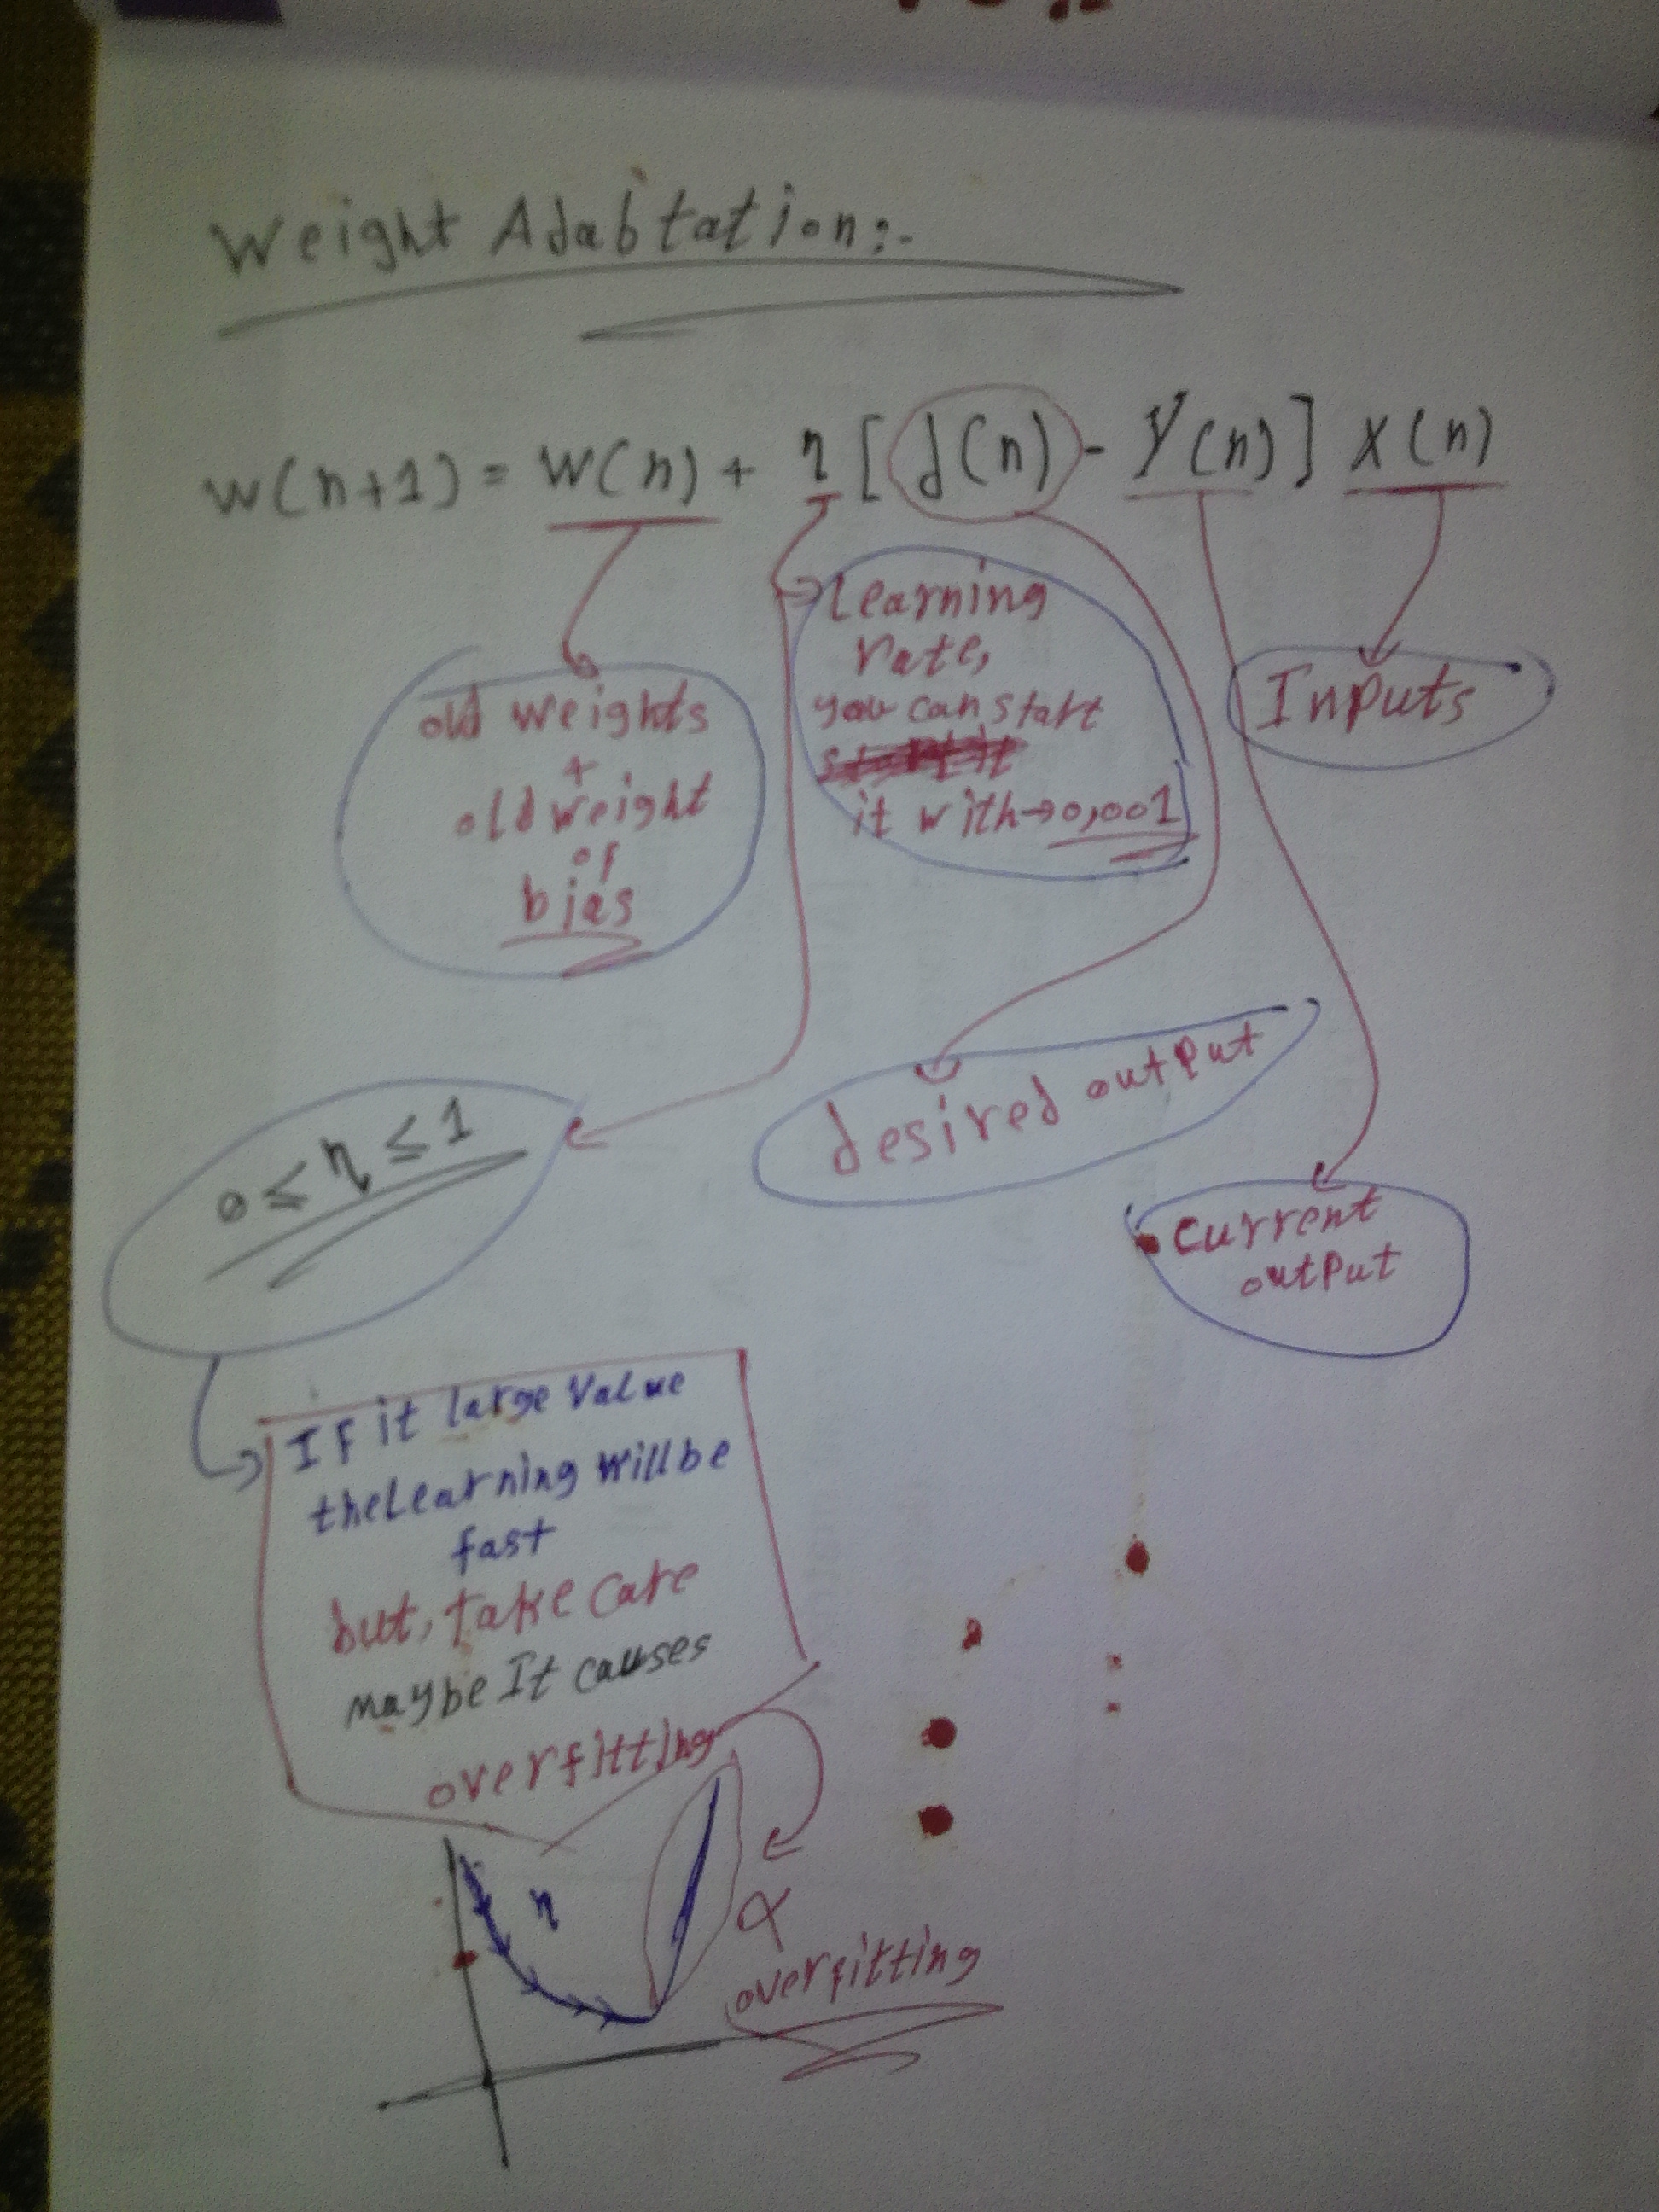 Weight Adabtation:-
w(n+1) = w(n) + η [d(n) - y(n)] x(n)
old weights
+
old weight
of
bias
Learning
rate,
you can start
it with→0,001
Inputs
desired output
current
output
0 ≤ η ≤ 1
IF it large value
the Learning will be
fast
but, take care
maybe It causes
overfitting
η
overfitting